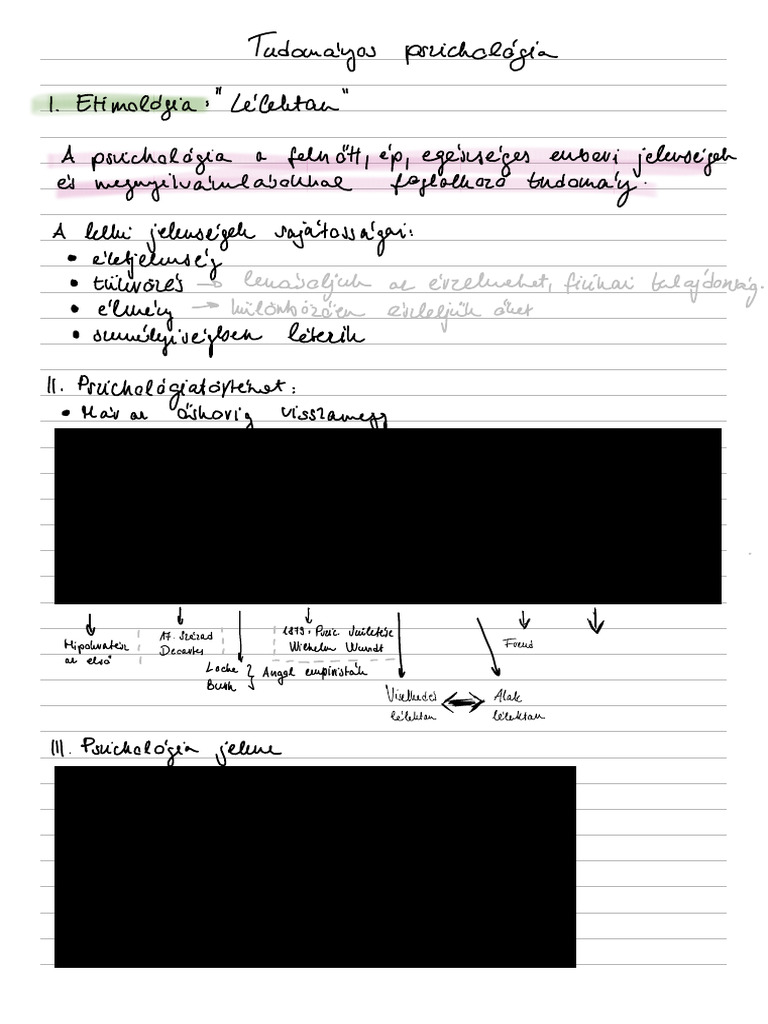 Tudományos pszichológia
I. Etimológia: "Lélektan"
A pszichológia a felnőtt, ép, egészséges emberi jelenségek
és megnyilvánulásokkal foglalkozó tudomány.
A lelki jelenségek sajátosságai:
• életjelenség
• tükrözés → lemásoljuk az érzelmeket, fizikai tulajdonság.
• élmény → különbözően észleljük őket
• személyiségben létezik
II. Pszichológiatörténet:
• Már az őskorig visszamegy
Hipokratész
az első
17. század
Decartes
1879. Pszic. születése
Wilhelm Wundt
Freud
Locke
} Angol empiristák
Viselkedés
lélektan
Alak
lélektan
III. Pszichológia jelene